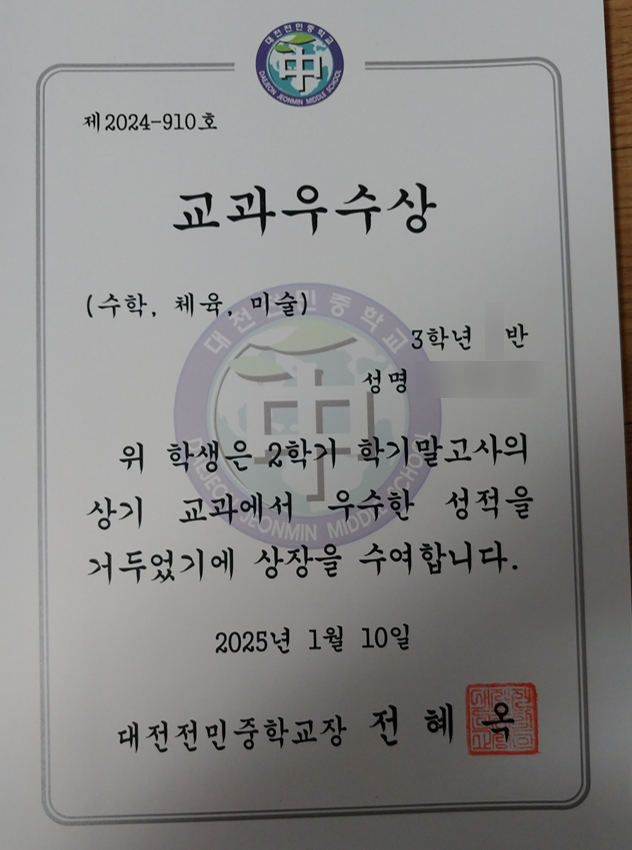 대전전민중학교
中
DAEJEON JEONMIN MIDDLE SCHOOL
제2024-910호
교과우수상
(수학, 체육, 미술)
대전전민중학교
3학년 반
성명
中
DAEJEON JEONMIN MIDDLE SCHOOL
위 학생은 2학기 학기말고사의
상기 교과에서 우수한 성적을
거두었기에 상장을 수여합니다.
2025년 1월 10일
대전전민중학교장 전 혜 옥